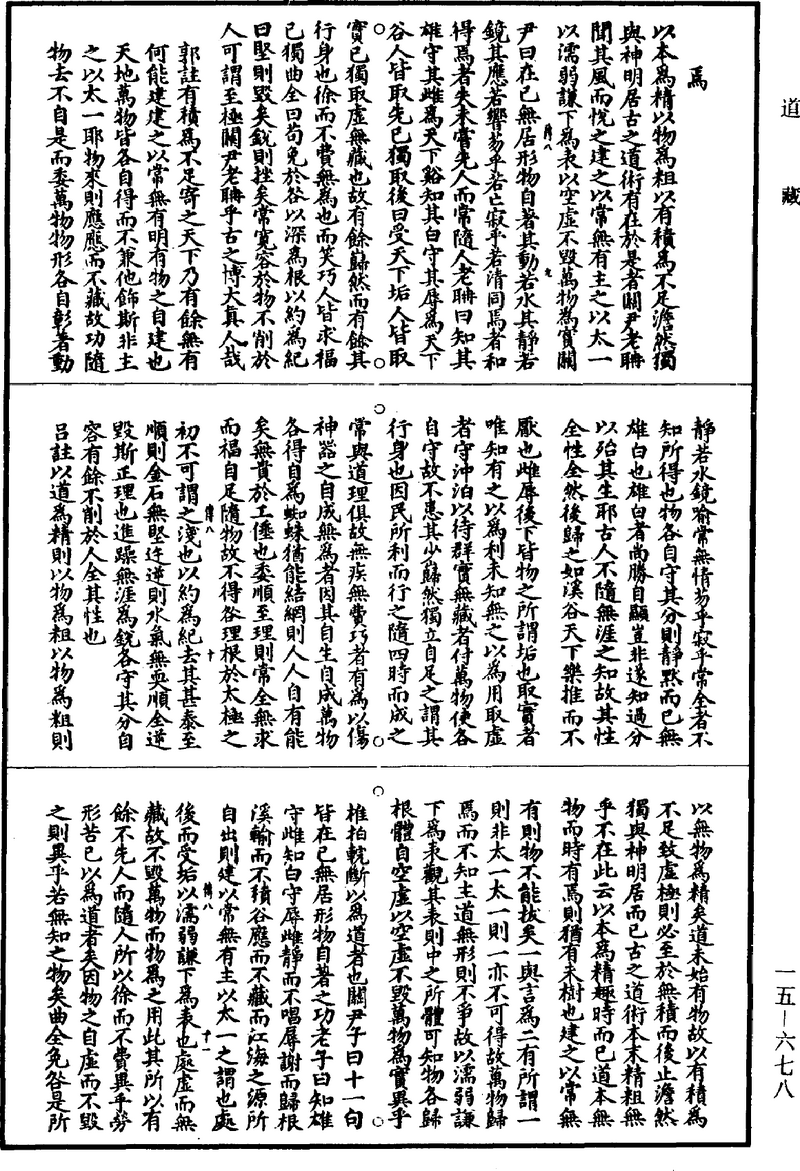 道藏
一五—六七八
焉
以本為精以物為粗以有積為不足澹然獨
與神明居古之道術有在於是者關尹老聃
聞其風而悅之建之以常無有主之以太一
以濡弱謙下為表以空虛不毀萬物為實關
尹曰在己無居形物自著其動若水其靜若
鏡其應若響芴乎若亡寂乎若清同焉者和
得焉者失未嘗先人而常隨人老聃曰知其
雄守其雌為天下谿知其白守其辱為天下
谷人皆取先己獨取後曰受天下垢人皆取
實己獨取虛無藏也故有餘巋然而有餘其
行身也徐而不費無為也而笑巧人皆求福
己獨曲全曰苟免於咎以深為根以約為紀
曰堅則毀矣銳則挫矣常寬容於物不削於
人可謂至極關尹老聃乎古之博大真人哉
郭註有積為不足寄之天下乃有餘無有
何能建建之以常無有明有物之自建也
天地萬物皆各自得而不兼他飾斯非主
之以太一耶物來則應應而不藏故功隨
物去不自是而委萬物物形各自彰著動
靜若水鏡喻常無情芴乎寂乎常全者不
知所得也物各自守其分則靜默而已無
雄白也雄白者尚勝自顯豈非逐知過分
以殆其生耶古人不隨無涯之知故其性
全性全然後歸之如溪谷天下樂推而不
厭也雌辱後下皆物之所謂垢也取實者
唯知有之以為利未知無之以為用取虛
者守沖泊以待群實無藏者付萬物使各
自守故不患其少巋然獨立自足之謂其
行身也因民所利而行之隨四時而成之
常與道理俱故無疾無費巧者有為以傷
神器之自成無為者因其自生自成萬物
各得自為蜘蛛猶能結網則人人自有能
矣無貴於工倕也委順至理則常全無求
而福自足隨物故不得咎理根於太極之
初不可謂之淺也以約為紀去其甚泰至
順則金石無堅迕逆則水氣無耎順全逆
毀斯正理也進躁無涯為銳各守其分自
容有餘不削於人全其性也
呂註以道為精則以物為粗以物為粗則
以無物為精矣道未始有物故以有積為
不足致虛極則必至於無積而後止澹然
獨與神明居而已古之道術本末精粗無
乎不在此云以本為精趣時而已道本無
物而時有焉則猶有末樹也建之以常無
有則物不能拔矣一與言為二有所謂一
則非太一太一則一亦不可得故萬物歸
焉而不知主道無形則不爭故以濡弱謙
下為表觀其表則中之所體可知物各歸
根體自空虛以空虛不毀萬物為實異乎
椎拍輐斷以為道者也關尹子曰十一句
皆在己無居形物自著之功老子曰知雄
守雌知白守辱雌靜而不唱辱謝而歸根
溪輸而不積谷應而不藏而江海之源所
自出則建以常無有主以太一之謂也處
後而受垢以濡弱謙下為表也處虛而無
藏故不毀萬物而物為之用此其所以有
餘不先人而隨人所以徐而不費異乎勞
形苦己以為道者矣因物之自虛而不毀
之則異乎若無知之物矣曲全免咎是所